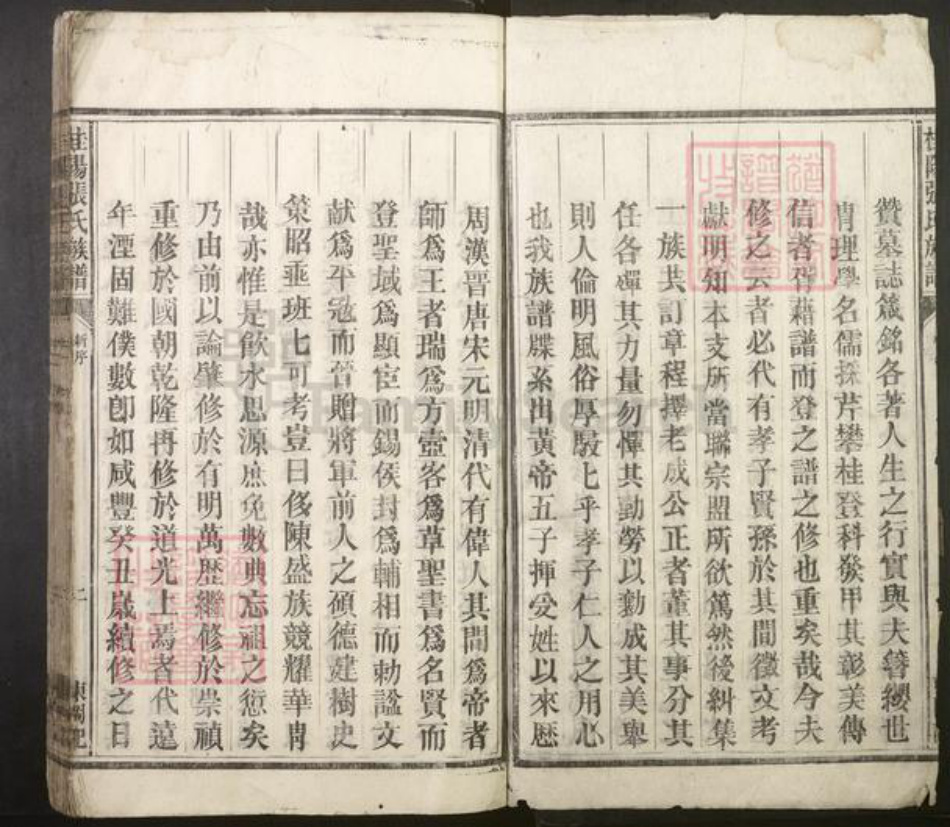 贊墓誌箴銘各著人生之行實與夫簪纓世
胄理學名儒採芹攀桂登科發甲其彰美傳
信者胥藉譜而登之譜之修也重矣哉今夫
修之云者必代有孝子賢孫於其間徵文考
獻明知本支所當聯宗盟所欲篤然後糾集
一族共訂章程擇老成公正者董其事分其
任各殫其力量勿憚其勤勞以勷成其美舉
則人倫明風俗厚駸七乎孝子仁人之用心
也我族譜牒系出黃帝五子揮受姓以來歷
周漢晋唐宋元明清代有偉人其間爲帝者
師爲王者瑞爲方壺客爲草聖書爲名賢而
登聖域爲顯宦而錫侯封爲輔相而勅諡文
献爲平寇而晉贈將軍前人之碩德建樹史
策昭垂班七可考豈曰侈陳盛族競耀華胄
哉亦惟是飲水思源庶免數典忘祖之愆矣
乃由前以論肇修於有明萬歷繼修於崇禎
重修於國朝乾隆再修於道光上焉者代遠
年湮固難僕數卽如咸豐癸丑歲續修之日
桂陽張氏族譜
新序
二